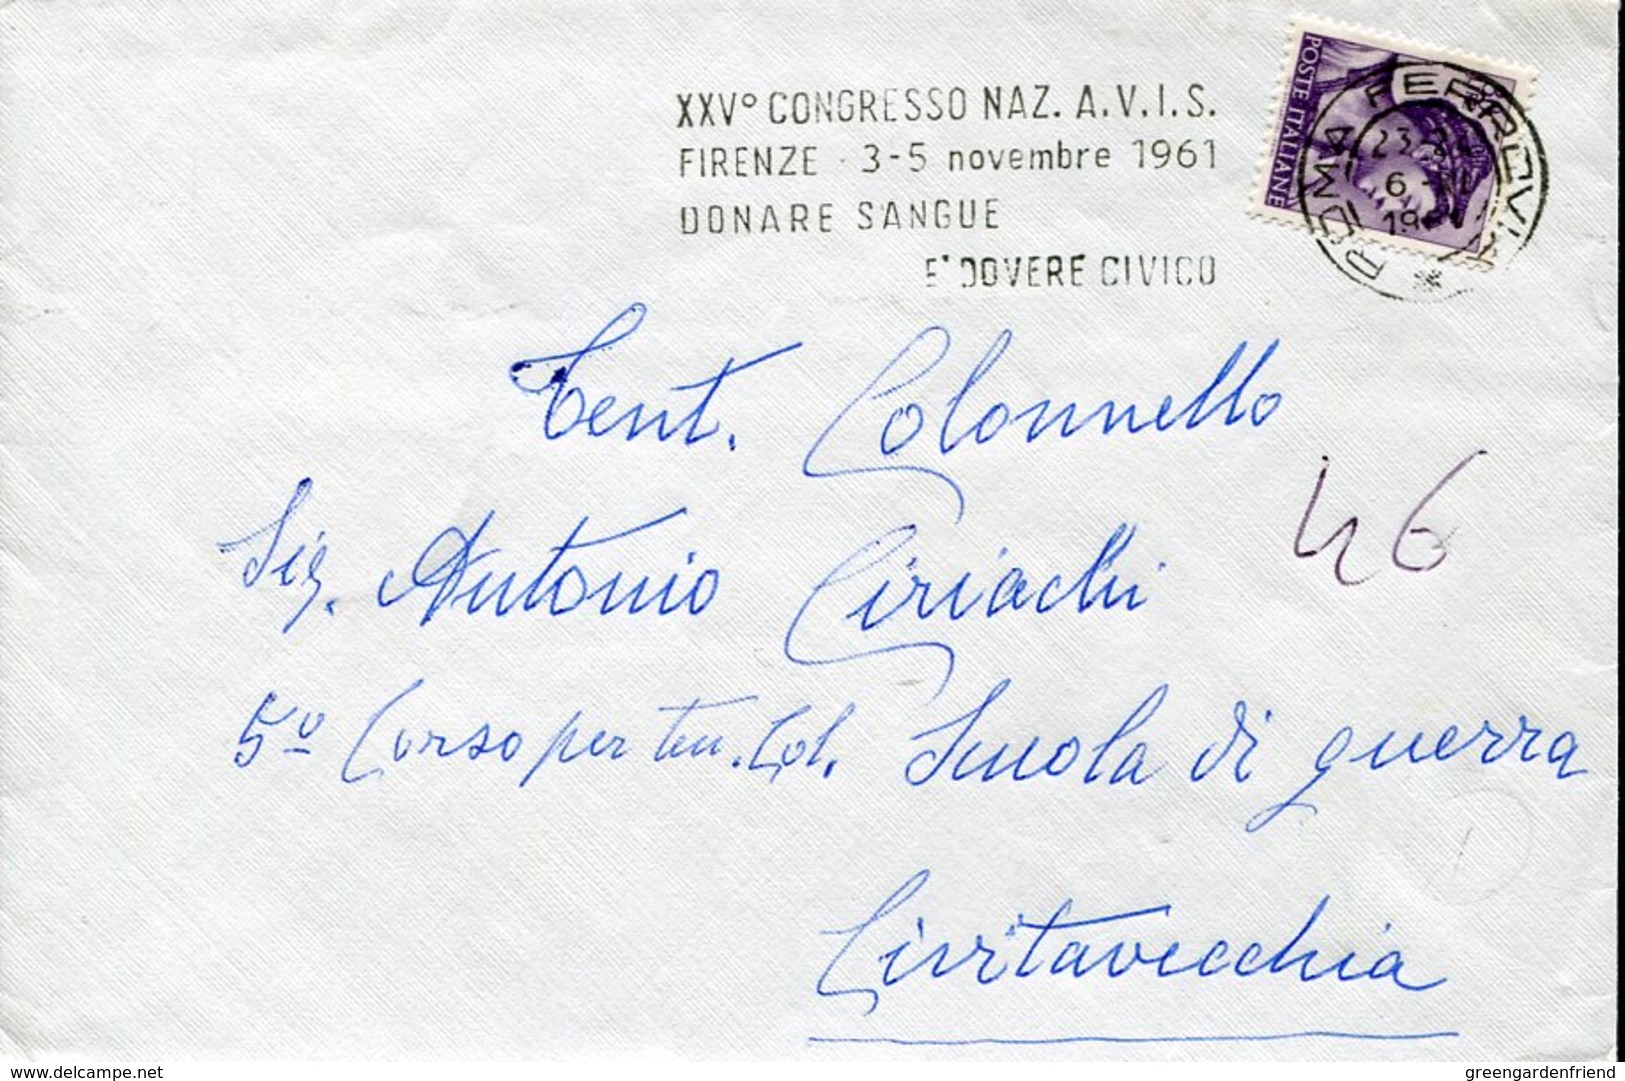 XXV° CONGRESSO NAZ. A.V.I.S.
FIRENZE · 3-5 novembre 1961
DONARE SANGUE
E' DOVERE CIVICO
POSTE ITALIANE
ROMA FERROVIA
6 - XI
Tent. Colonnello
Sig. Antonio Ciriachi
46
5º Corso per ten. Col. Scuola di guerra
Civitavecchia
delcampe.net
greengardenfriend